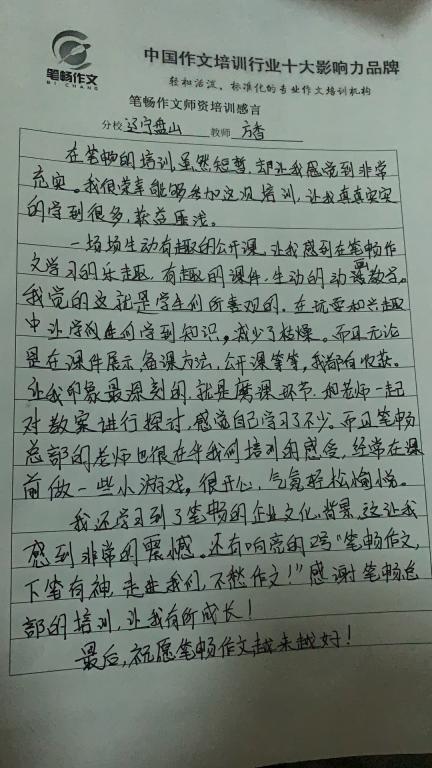 笔畅作文
BI CHANG
中国作文培训行业十大影响力品牌
轻松活泼、标准化的专业作文培训机构
笔畅作文师资培训感言
分校 辽宁盘山 教师 方香
在笔畅的培训虽然短暂,却让我感觉到非常
充实。我很荣幸能够参加这次培训,让我真真实实
的学到很多,获益匪浅。
一场场生动有趣的公开课,让我感到在笔畅作
文学习的乐趣,有趣的课件,生动的动画教学。
我觉的这就是学生们所喜欢的,在玩耍和兴趣
中让学生们学到知识,减少了枯燥。而且无论
是在课件展示、备课方法、公开课等等,我都有收获。
让我印象最深刻的,就是磨课环节,和老师一起
对教案进行探讨,感觉自己学习了不少。而且笔畅
总部的老师也很在乎我们培训的感受,经常在课
前做一些小游戏,很开心,气氛轻松愉悦。
我还学习到了笔畅的企业文化、背景,这让我
感到非常的震憾。还有响亮的口号“笔畅作文,
下笔有神,走进我们,不愁作文!”感谢笔畅总
部的培训,让我有所成长!
最后,祝愿笔畅作文越来越好!